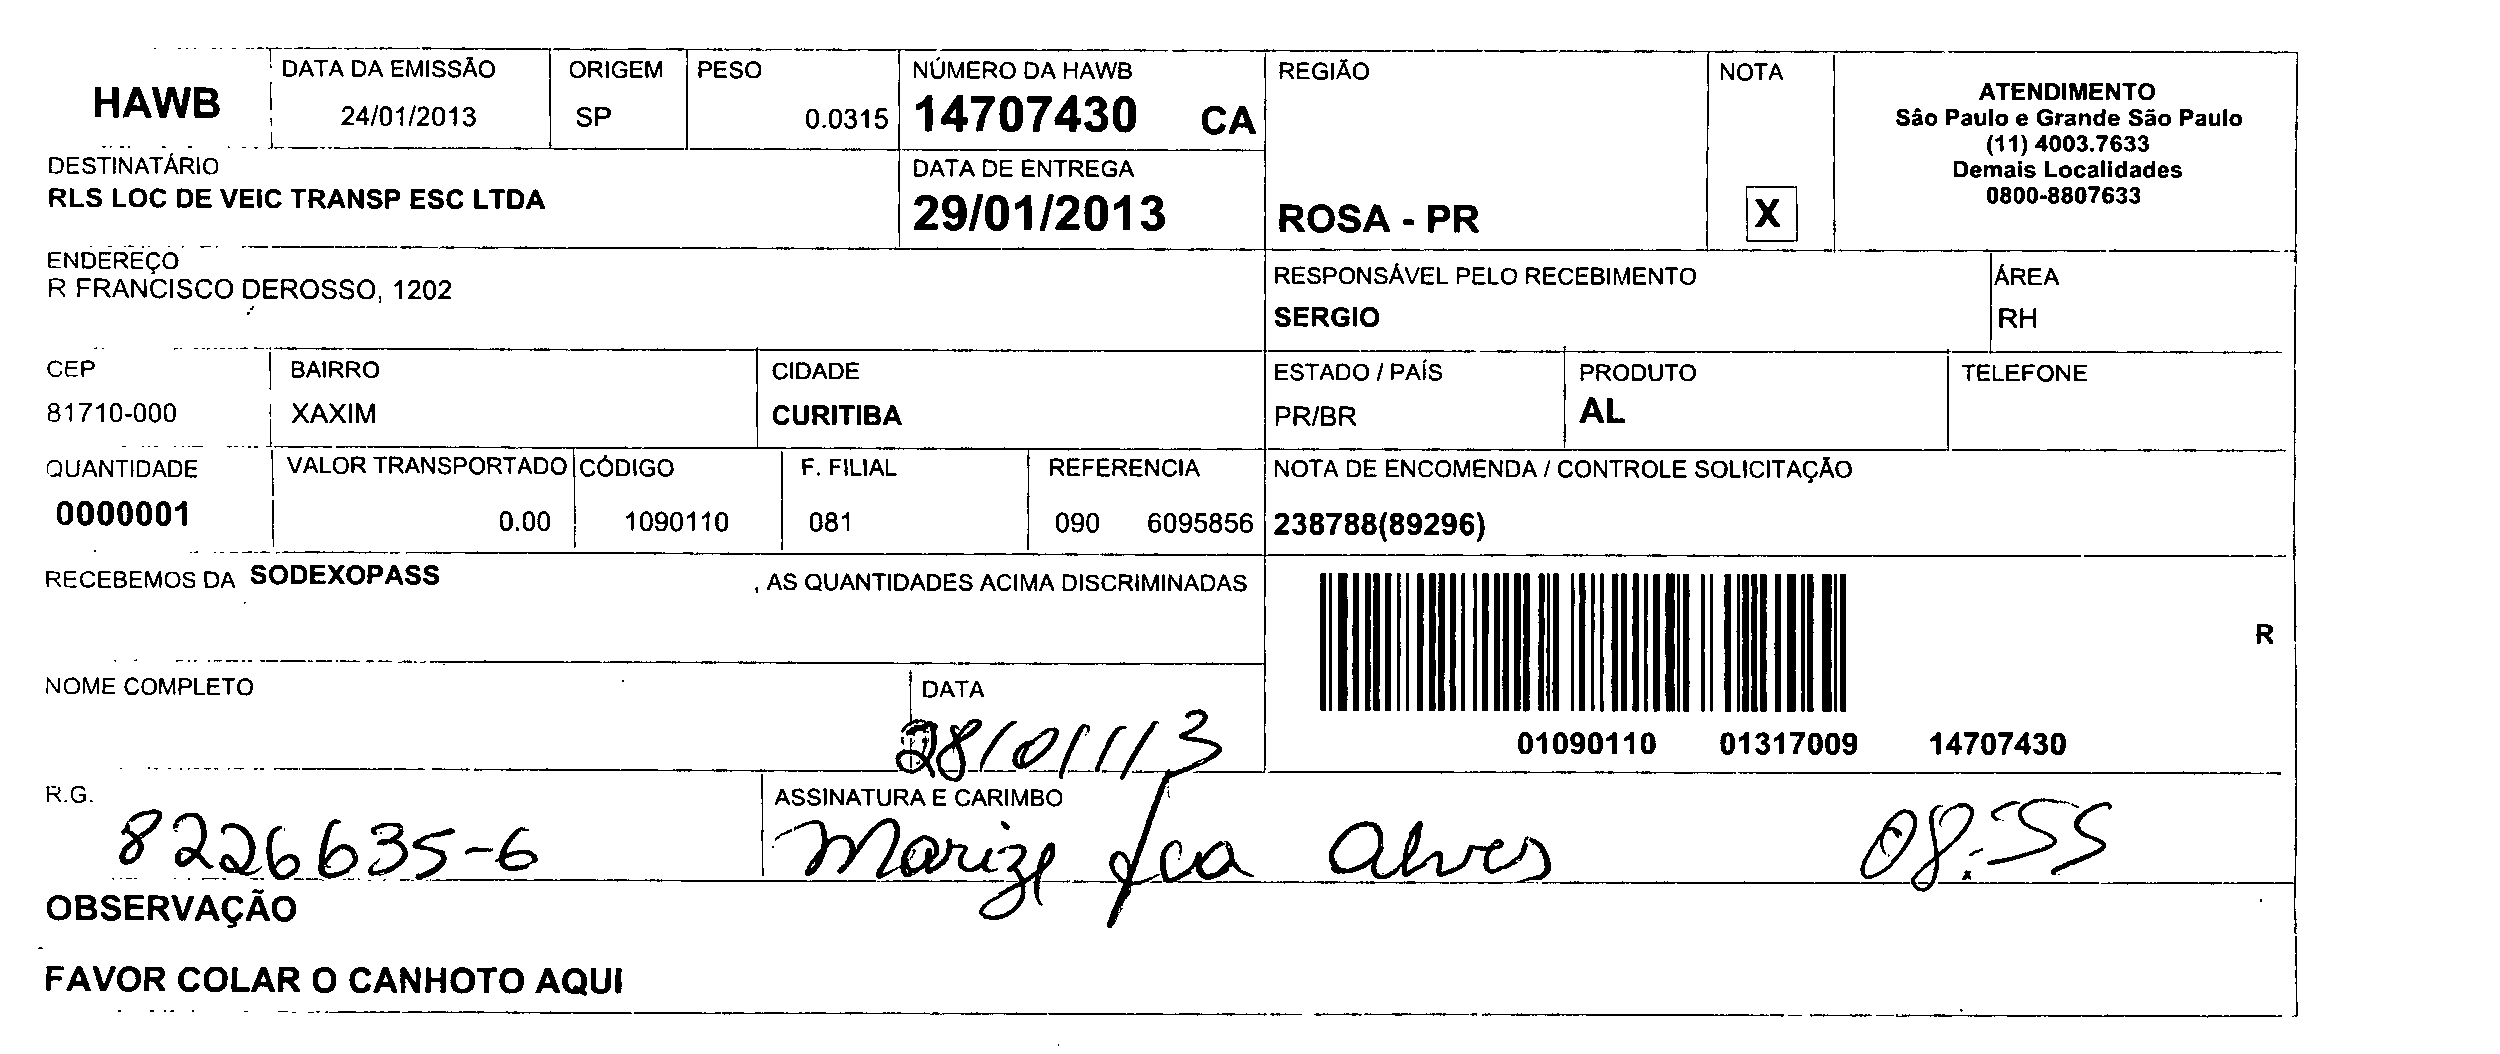 HAWB
DATA DA EMISSÃO
24/01/2013
ORIGEM
SP
PESO
0.0315
NÚMERO DA HAWB
14707430 CA
REGIÃO
ROSA - PR
NOTA
X
ATENDIMENTO
São Paulo e Grande São Paulo
(11) 4003.7633
Demais Localidades
0800-8807633
DESTINATÁRIO
RLS LOC DE VEIC TRANSP ESC LTDA
DATA DE ENTREGA
29/01/2013
ENDEREÇO
R FRANCISCO DEROSSO, 1202
RESPONSÁVEL PELO RECEBIMENTO
SERGIO
ÁREA
RH
CEP
81710-000
BAIRRO
XAXIM
CIDADE
CURITIBA
ESTADO / PAÍS
PR/BR
PRODUTO
AL
TELEFONE
QUANTIDADE
0000001
VALOR TRANSPORTADO
0.00
CÓDIGO
1090110
F. FILIAL
081
REFERENCIA
090 6095856
NOTA DE ENCOMENDA / CONTROLE SOLICITAÇÃO
238788(89296)
RECEBEMOS DA SODEXOPASS , AS QUANTIDADES ACIMA DISCRIMINADAS
R
01090110 01317009 14707430
NOME COMPLETO
DATA
28/01/13
R.G.
8226635-6
ASSINATURA E CARIMBO
Marize Alves
08:55
OBSERVAÇÃO
FAVOR COLAR O CANHOTO AQUI